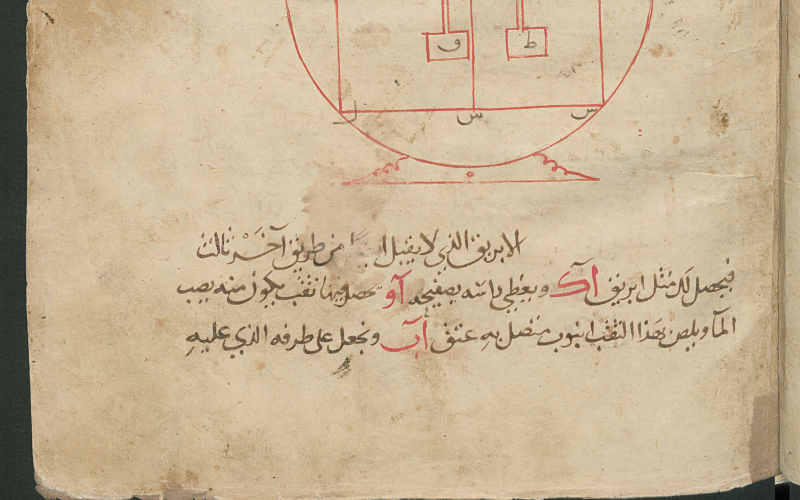 ف ط
ل س س
الابريق الذي لا يقبل من طريق آخر ثالث
فيحصل لك مثل ابريق اَكَ ويغطي راسه بصفيحه اَو فيها ثقب يكون منه يصب
المآ ويلصق بهذا الثقب انبوب متصل به عنق اَبَ ونجعل على طرفه الذي عليه